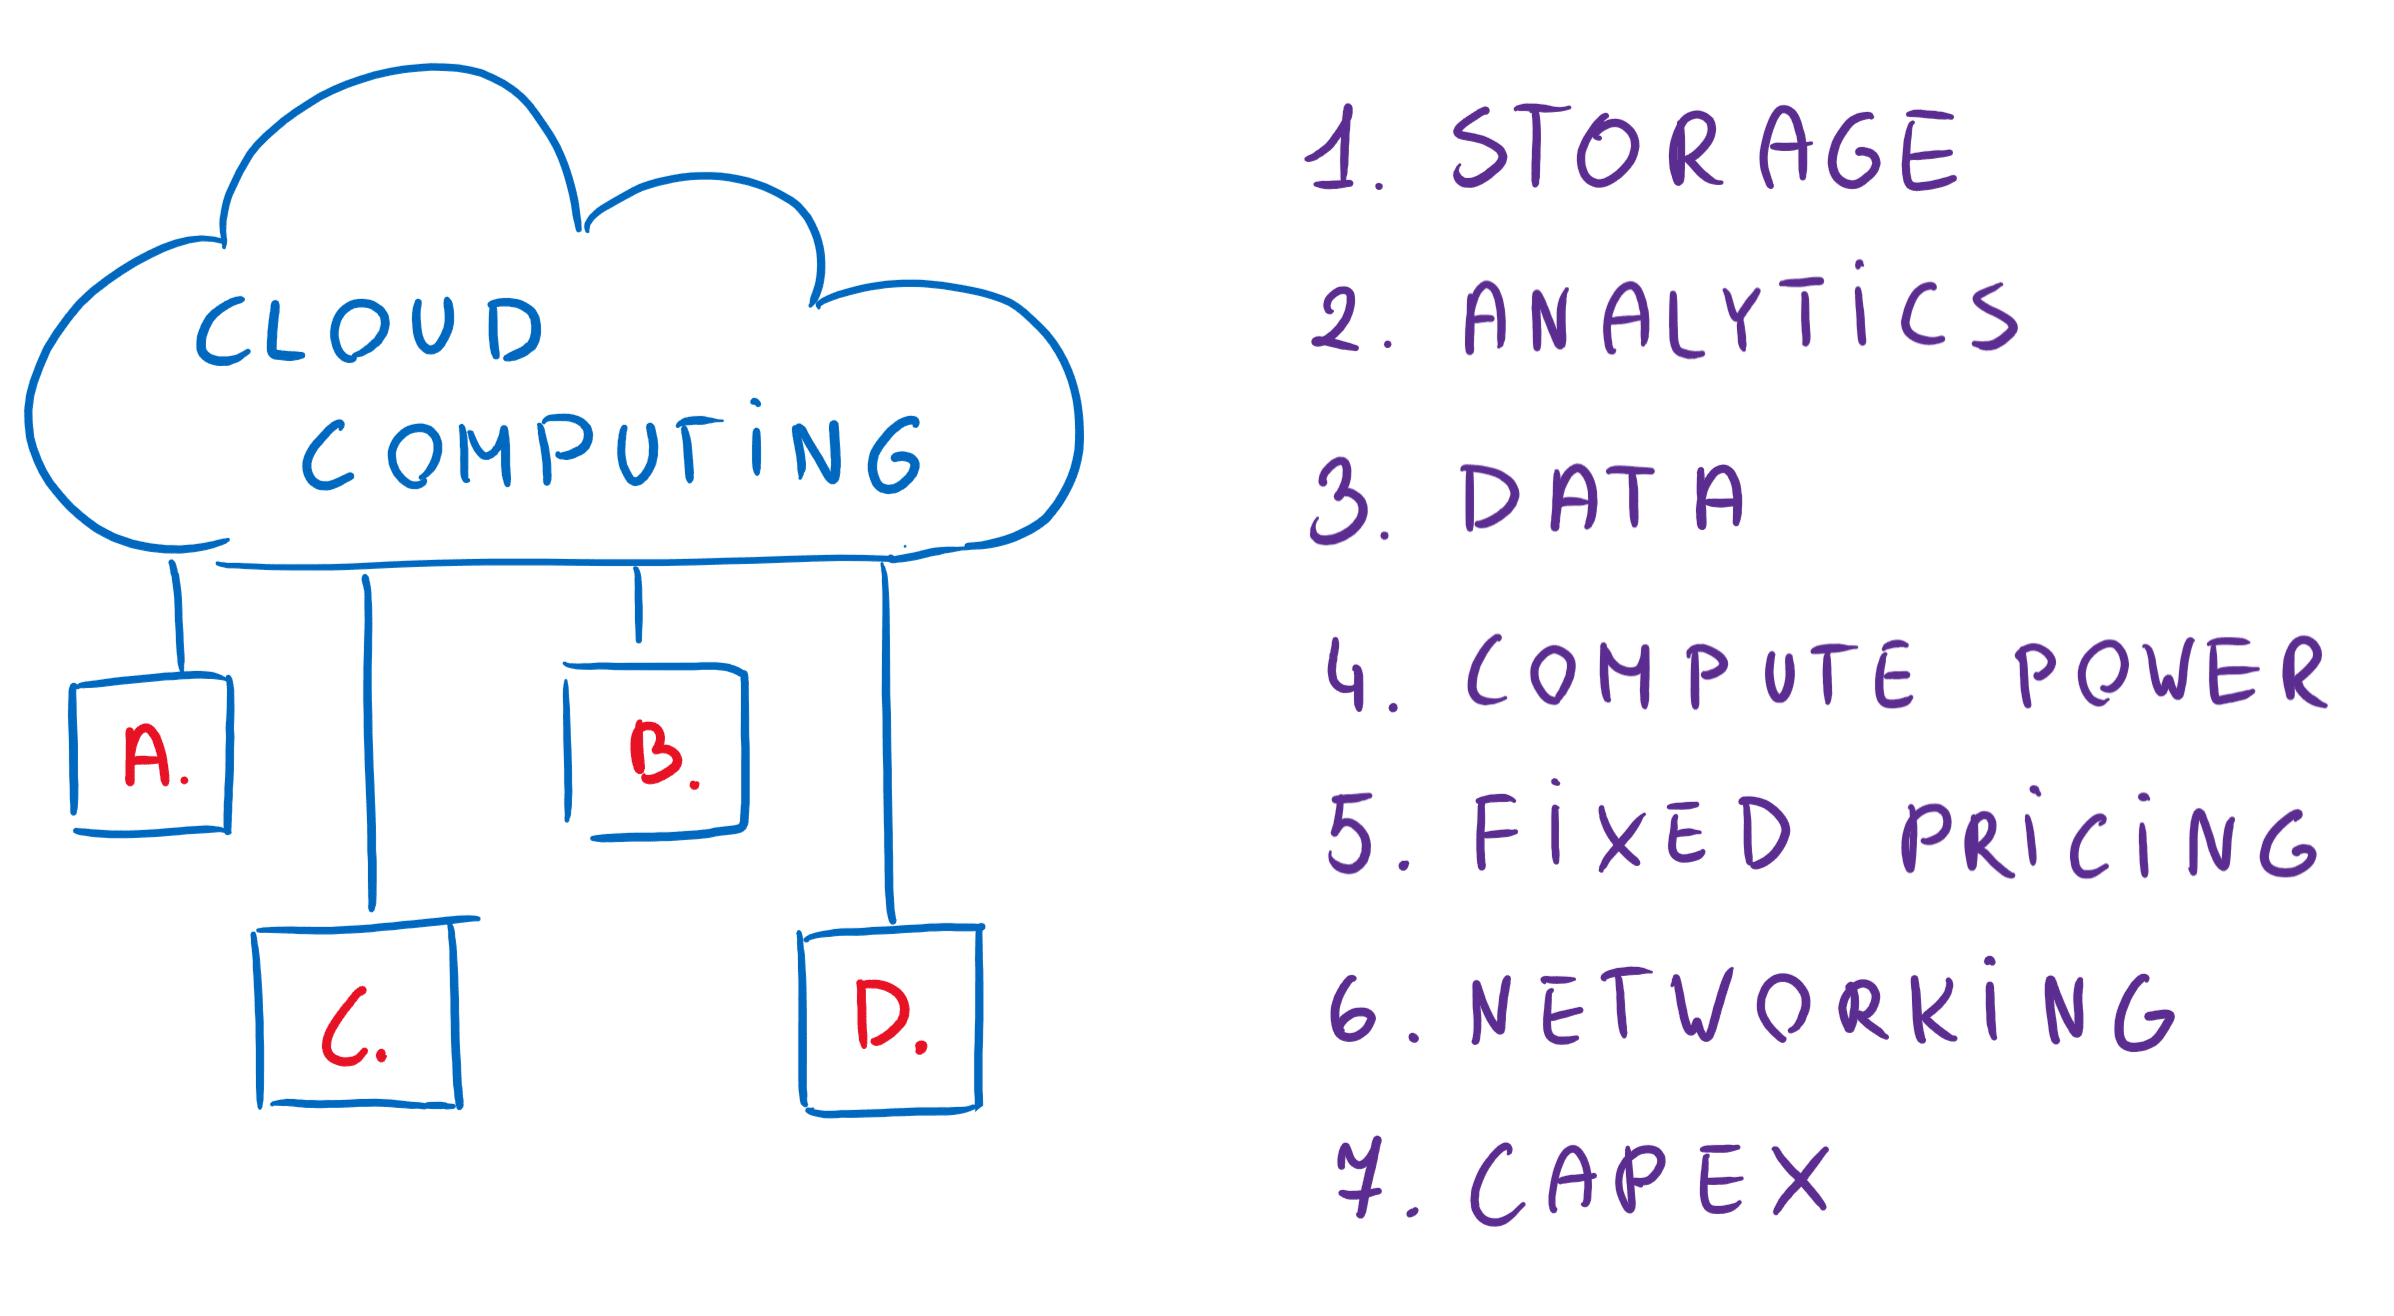 CLOUD
COMPUTING
A.
B.
C.
D.
1. STORAGE
2. ANALYTICS
3. DATA
4. COMPUTE POWER
5. FIXED PRICING
6. NETWORKING
7. CAPEX